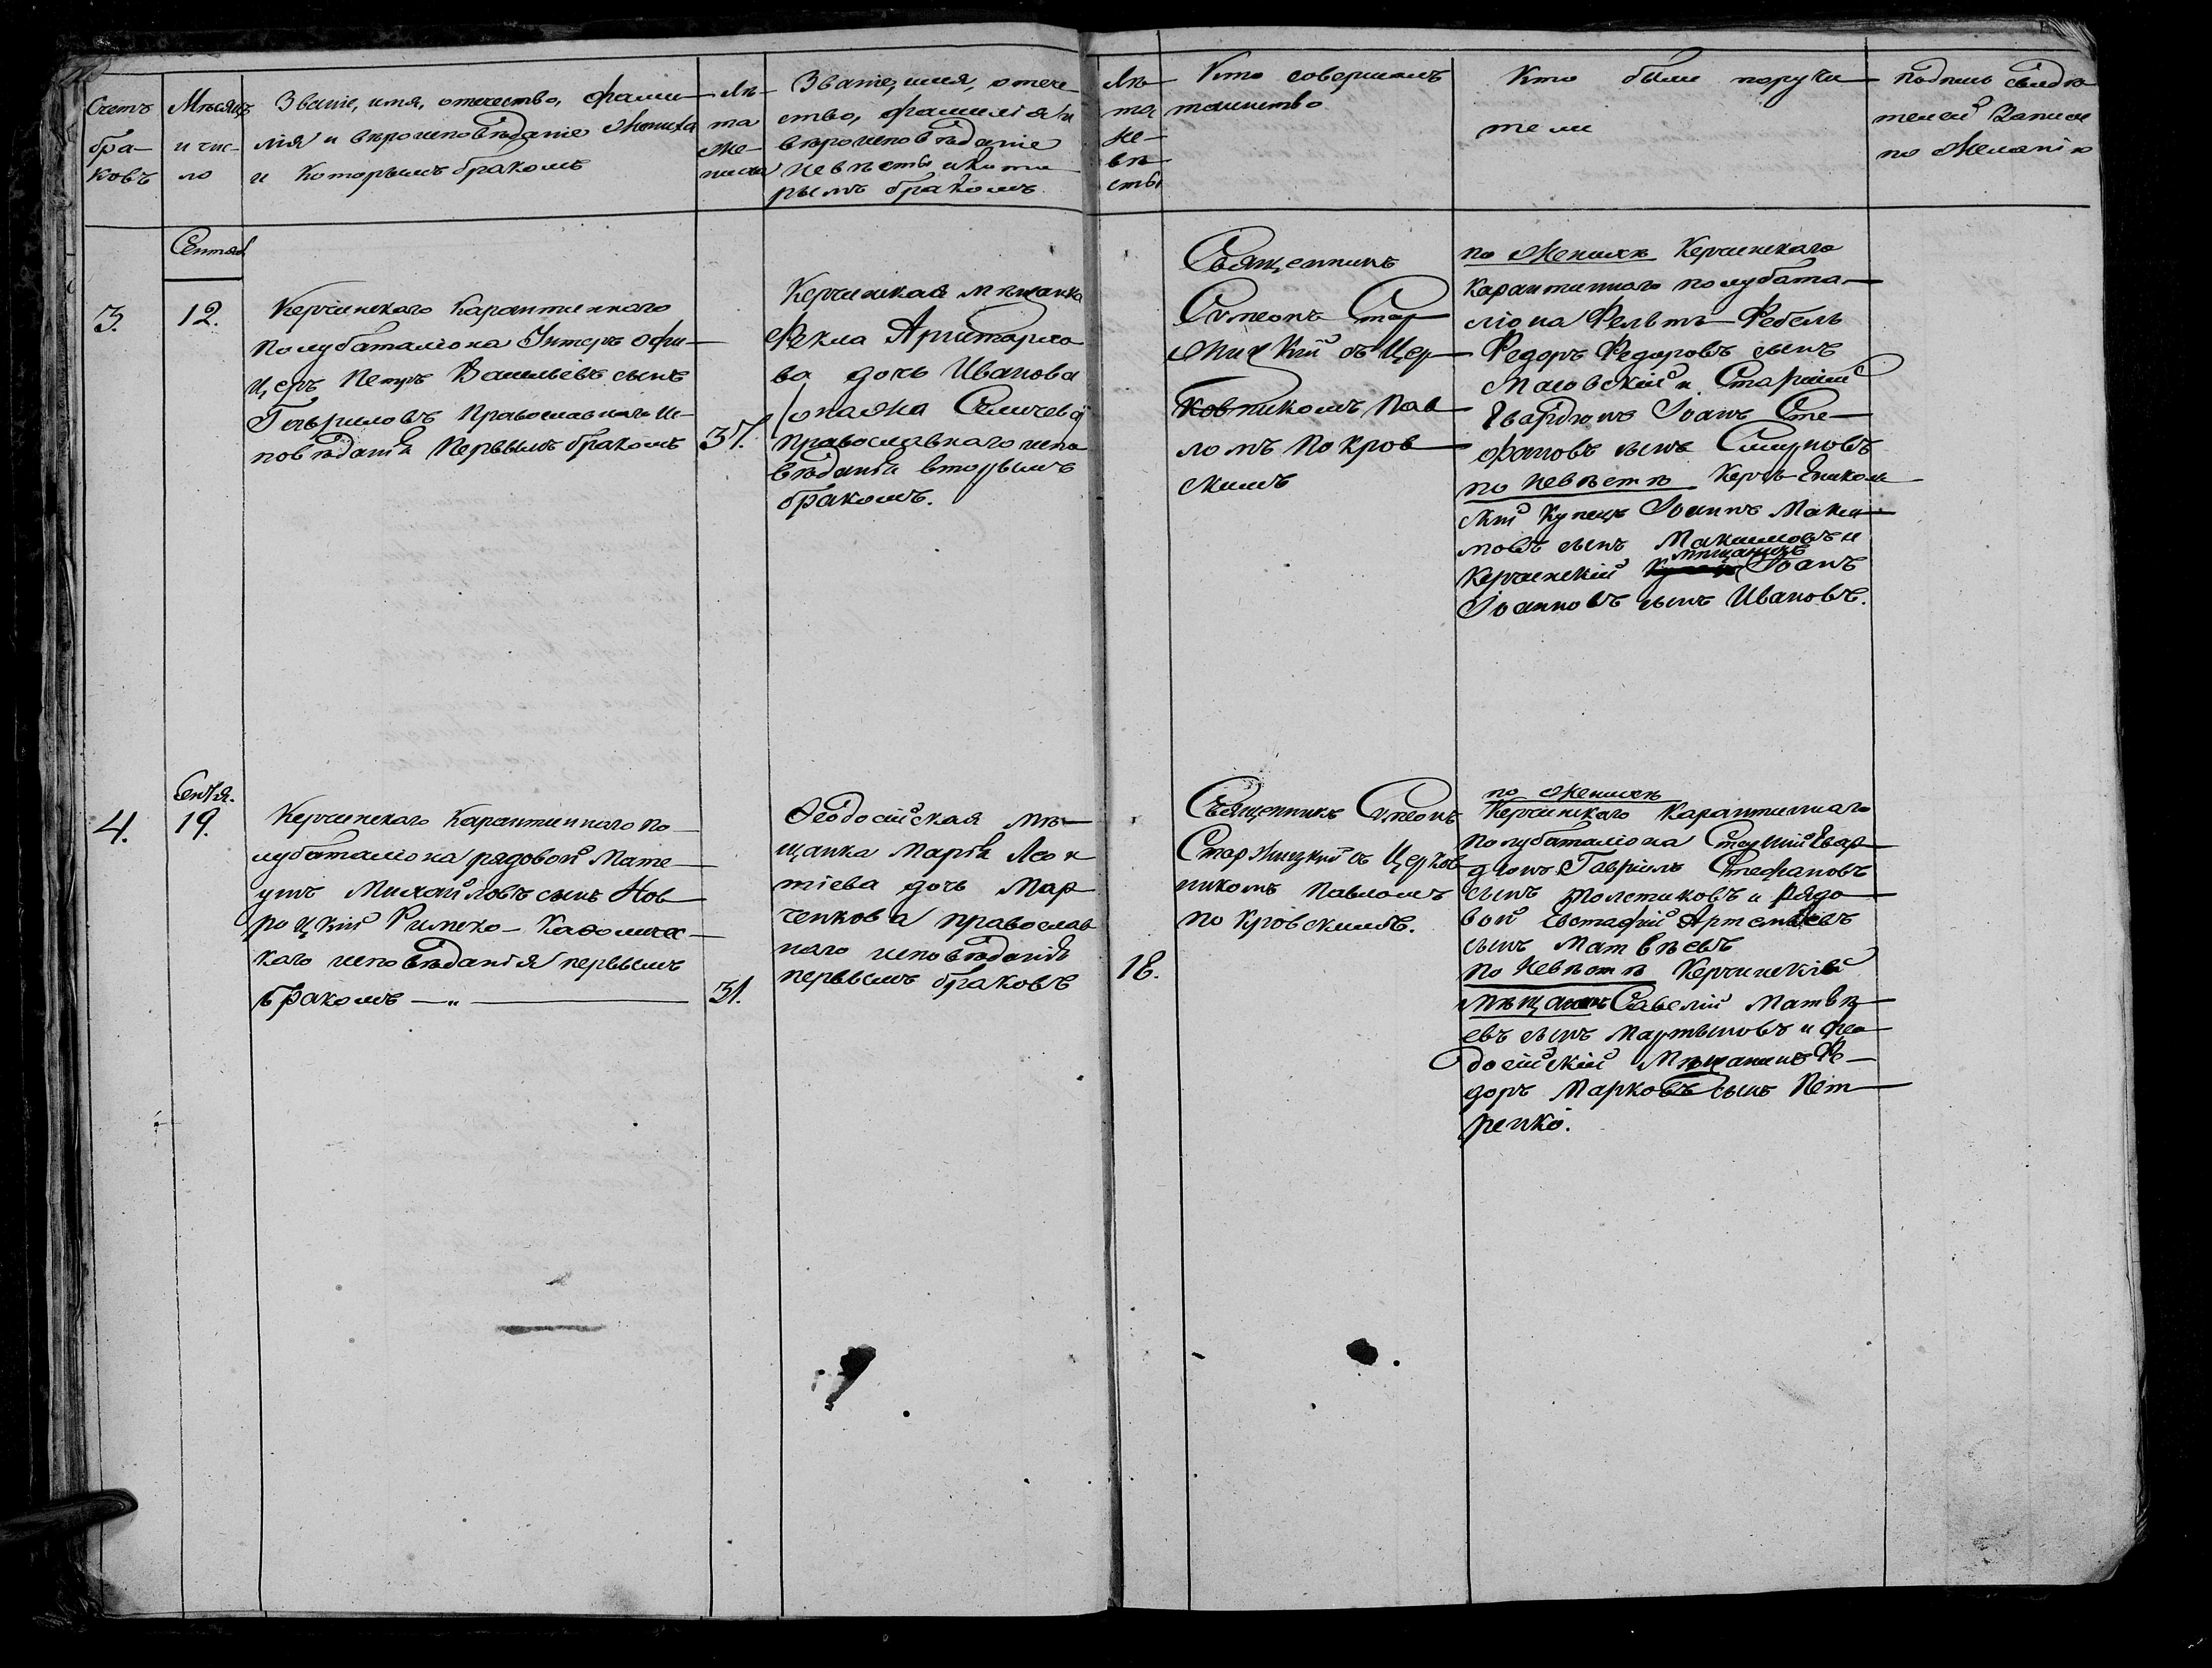 Счетъ
бра-
ковъ
Мѣсяцъ
и чис-
ло
Званіе, имя, отечество, фами-
лія и вѣроисповѣданіе Жениха
и Которымъ бракомъ
Лѣ-
та
Же-
ниха
Званіе, имя, отече
ство, фамилія и
вѣроисповѣданіе
невѣсты и кото
рымъ бракомъ
Лѣ-
та
не-
вѣ-
сты
Кто совершалъ
таинство
Кто были поручи
тели
Подпись свидѣ
телей Записи
по Желанію
Сентяб.
3.
12.
Керчинскаго Карантиннаго
Полубаталіона Унтеръ офи-
церъ Петръ Васильевъ сынъ
Гавриловъ Православнаго ис-
повѣданія Первымъ бракомъ
37.
Керчинская мѣщанка
Фекла Аристархо
ва дочь Иванова
Православнаго испо
вѣданія вторымъ
бракомъ.
Священникъ
Сѵмеонъ Стар
жицкій съ Цер-
ковникомъ Пав
ломъ Покров-
скимъ
по Женихѣ Керчинскаго
Карантиннаго полубата-
ліона Фельтъ-Фебель
Федоръ Федоровъ сынъ
и Старшій
Гвардіонъ Іоанъ Сте-
фановъ сынъ Смирновъ
по Невѣстѣ Керчь-Ениколь
скій Купецъ Іоаннъ Макси-
мовъ сынъ Максимовъ и
мѣщанинъ
Керчинскій Іоанъ
Іоанновъ сынъ Ивановъ.
Сентя.
4.
19.
Керчинскаго Карантиннаго по-
лубаталіона рядовой Мате-
ушъ Михайловъ сынъ Нов
роцкій Римско-Католичес-
каго исповѣданія первымъ
бракомъ —„—
31.
Ѳеодосійская мѣ-
щанка Марія Леон
тіева дочь Мар
ченкова православ
наго исповѣданія
первымъ браковъ
18.
Священникъ Сѵмеонъ
Старжицкій съ Церков
никомъ Павломъ
Покровскимъ.
по Женихѣ
Керчинскаго Карантиннаго
Полубаталіона Старшій Гвар-
діонъ Гавріилъ Стефановъ
сынъ Толстиковъ и Рядо-
вой Евстафій Артемьевъ
сынъ Матвѣевъ
по Невѣстѣ Керчинскій
мѣщанинъ Савелій Матвѣ-
евъ сынъ Мартыновъ и Фео
досійскій Мѣщанинъ Фе-
доръ Марковъ сынъ Пет-
ренко.